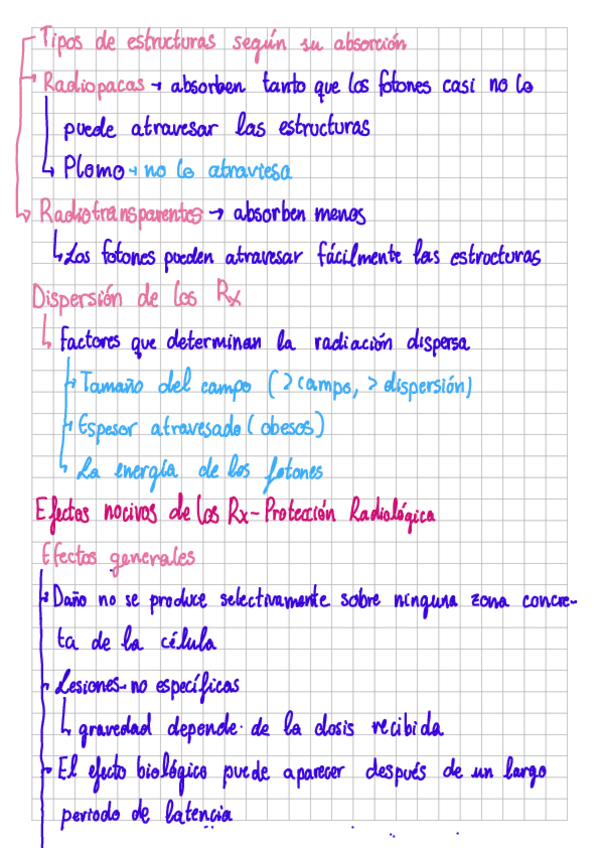 Tipos de estructuras según su absorción
Radiopacas → absorben tanto que los fotones casi no lo
puede atravesar las estructuras
Plomo → no lo atraviesa
Radiotransparentes → absorben menos
Los fotones pueden atravesar fácilmente las estructuras
Dispersión de los Rx
factores que determinan la radiación dispersa
Tamaño del campo (> campo, > dispersión)
Espesor atravesado (obesos)
La energía de los fotones
Efectos nocivos de los Rx - Protección Radiológica
Efectos generales
Daño no se produce selectivamente sobre ninguna zona concre-
ta de la célula
Lesiones → no específicas
gravedad depende de la dosis recibida
El efecto biológico puede aparecer después de un largo
periodo de latencia